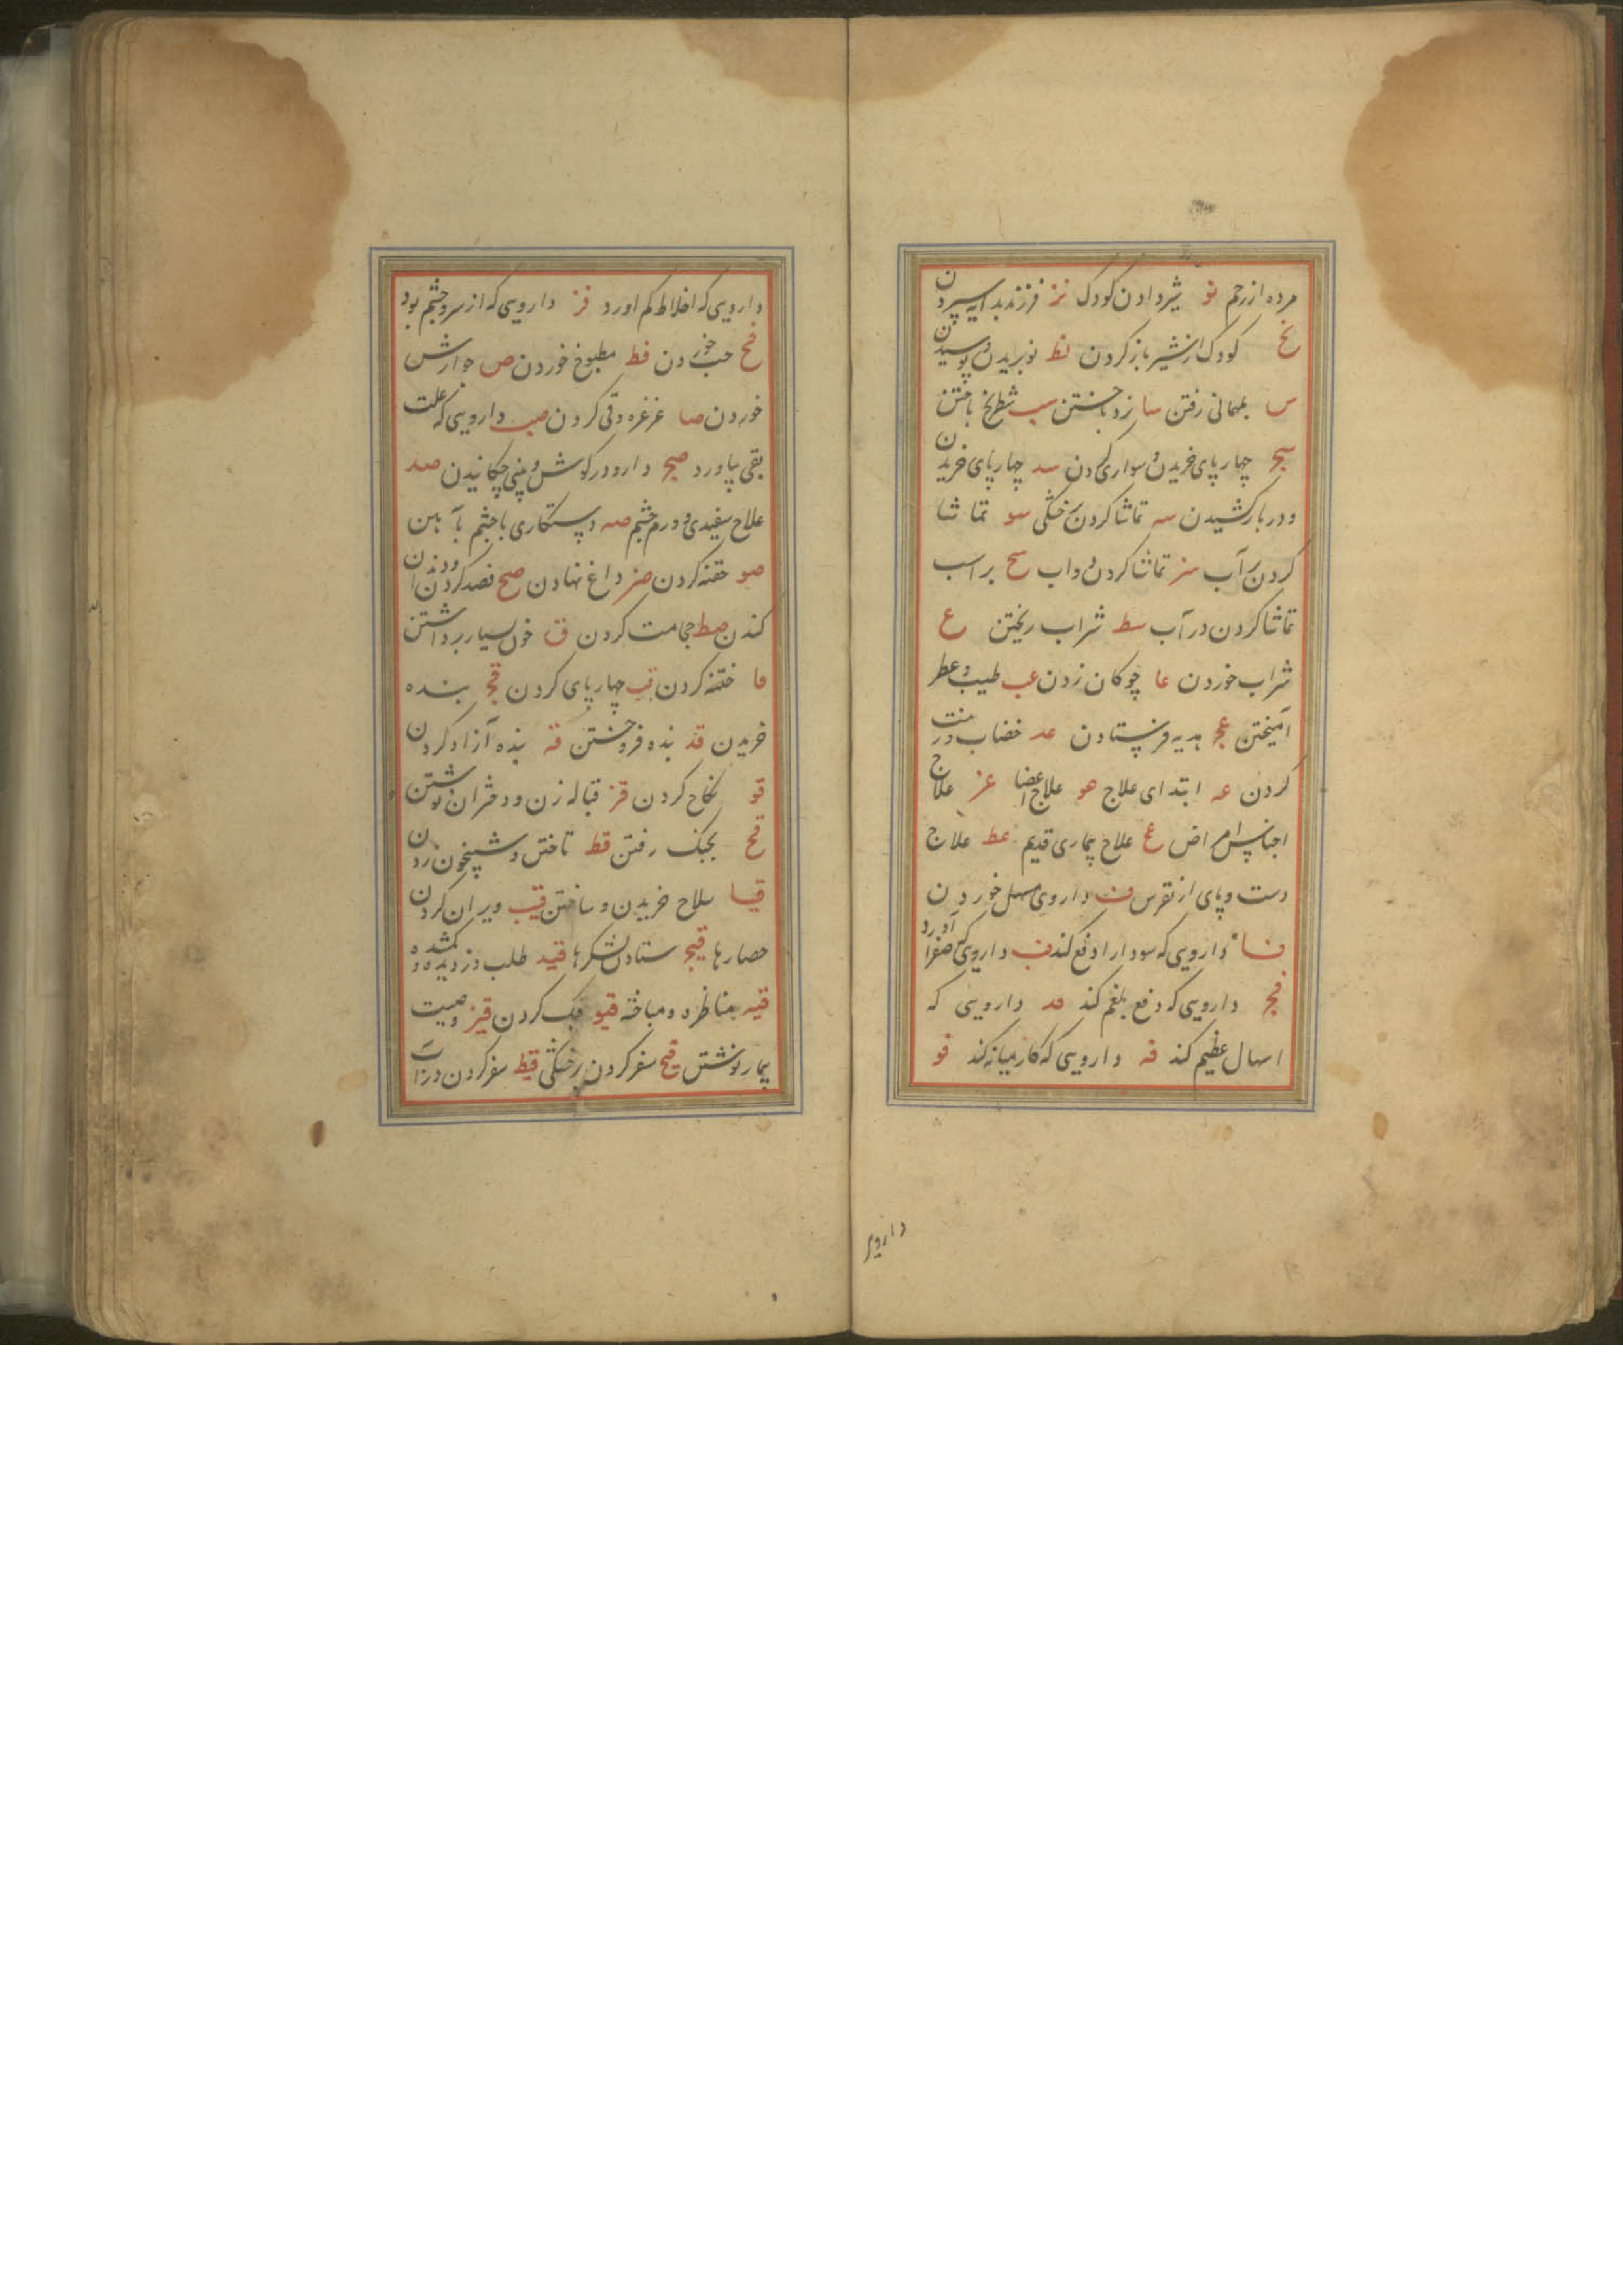 مرده از رحم نو شیر دادن کودک نز فرزند بدایه سپردن
نح کودک از شیر باز کردن نط نو بریدن و پوشیدن
س بمهمانی رفتن سا نرد باختن سب شطرنج باختن
سج چهارپای خریدن و سواری کردن سد چهارپای خریدن
و در بار کشیدن سه تماشا کردن بر خشکی سو تماشا
کردن بر آب سز تماشا کردن دواب سح بر اسب
تماشا کردن در آب سط شراب ریختن ع
شراب خوردن عا چوکان زدن عب طیب و عطر
آمیختن عج هدیه فرستادن عد خضاب و زینت
کردن عه ابتدای علاج عو علاج اعضا عز علاج
اجناس امراض عح علاج بیماری قدیم عط علاج
دست و پای از نقرس ف داروی مسهل خوردن
فا دارویی که سودا را دفع کند فب دارویی که صفرا آورد
فج دارویی که دفع بلغم کند فد دارویی که
اسهال عظیم کند فه دارویی که کار میانه کند فو
دارویی
دارویی که اخلاط کم آورد فز دارویی که از سر و چشم بود
فح حب خوردن فط مطبوخ خوردن ص جوارش
خوردن صا غرغره و قی کردن صب دارویی که علت
بقی بیاورد صج دارو در کوش و بینی چکانیدن صد
علاج سفیدی و ورم چشم صه دستکاری با چشم بآهن
صو حقنه کردن صز داغ نهادن صح فصد کردن و دندان
کندن صط حجامت کردن ق خون بسیار برداشتن
قا ختنه کردن قب چهارپای کردن قج بنده
خریدن قد بنده فروختن قه بنده آزاد کردن
قو نکاح کردن قز قباله زن و دختران نوشتن
قح بجنک رفتن قط تاختن و شبیخون زدن
قیا سلاح خریدن و ساختن قیب ویران کردن
حصارها قیج ستادن لشکرها قید طلب دزدیده و کمشده
قیه مناظره و مباحثه قیو کردن قیز وصیت
بیمار نوشتن قیح سفر کردن بر خشکی قیط سفر کردن در آب